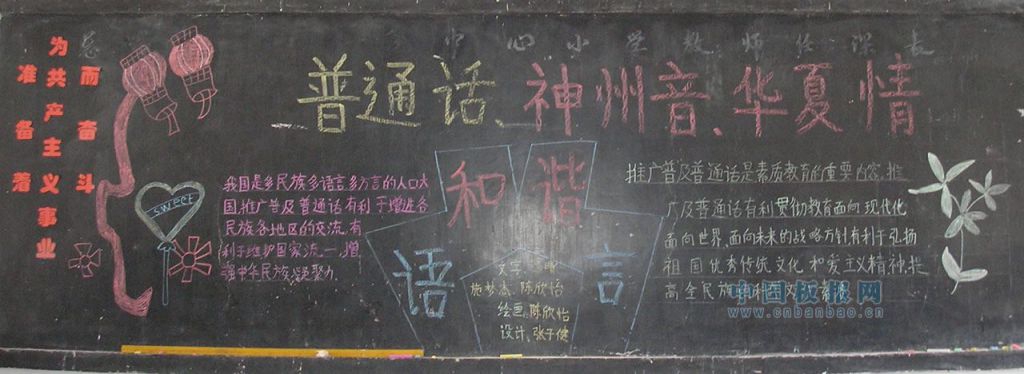 为共产主义事业
而奋斗
准备着
中心小学教师任课表
普通话、神州音、华夏情
和谐
语言
sweet
我国是多民族多语言多方言的人口大
国,推广普及普通话有利于增进各
民族各地区的交流,有
利于维护国家统一,增
强中华民族凝聚力.
文字:
施梦杰、陈欣怡
绘画:陈欣怡
设计:张子健
推广普及普通话是素质教育的重要内容,推
广及普通话有利贯彻教育面向现代化
面向世界,面向未来的战略方针有利于弘扬
祖国优秀传统文化和爱主义精神,提
高全民族
中国板报网
www.cnbanbao.cn